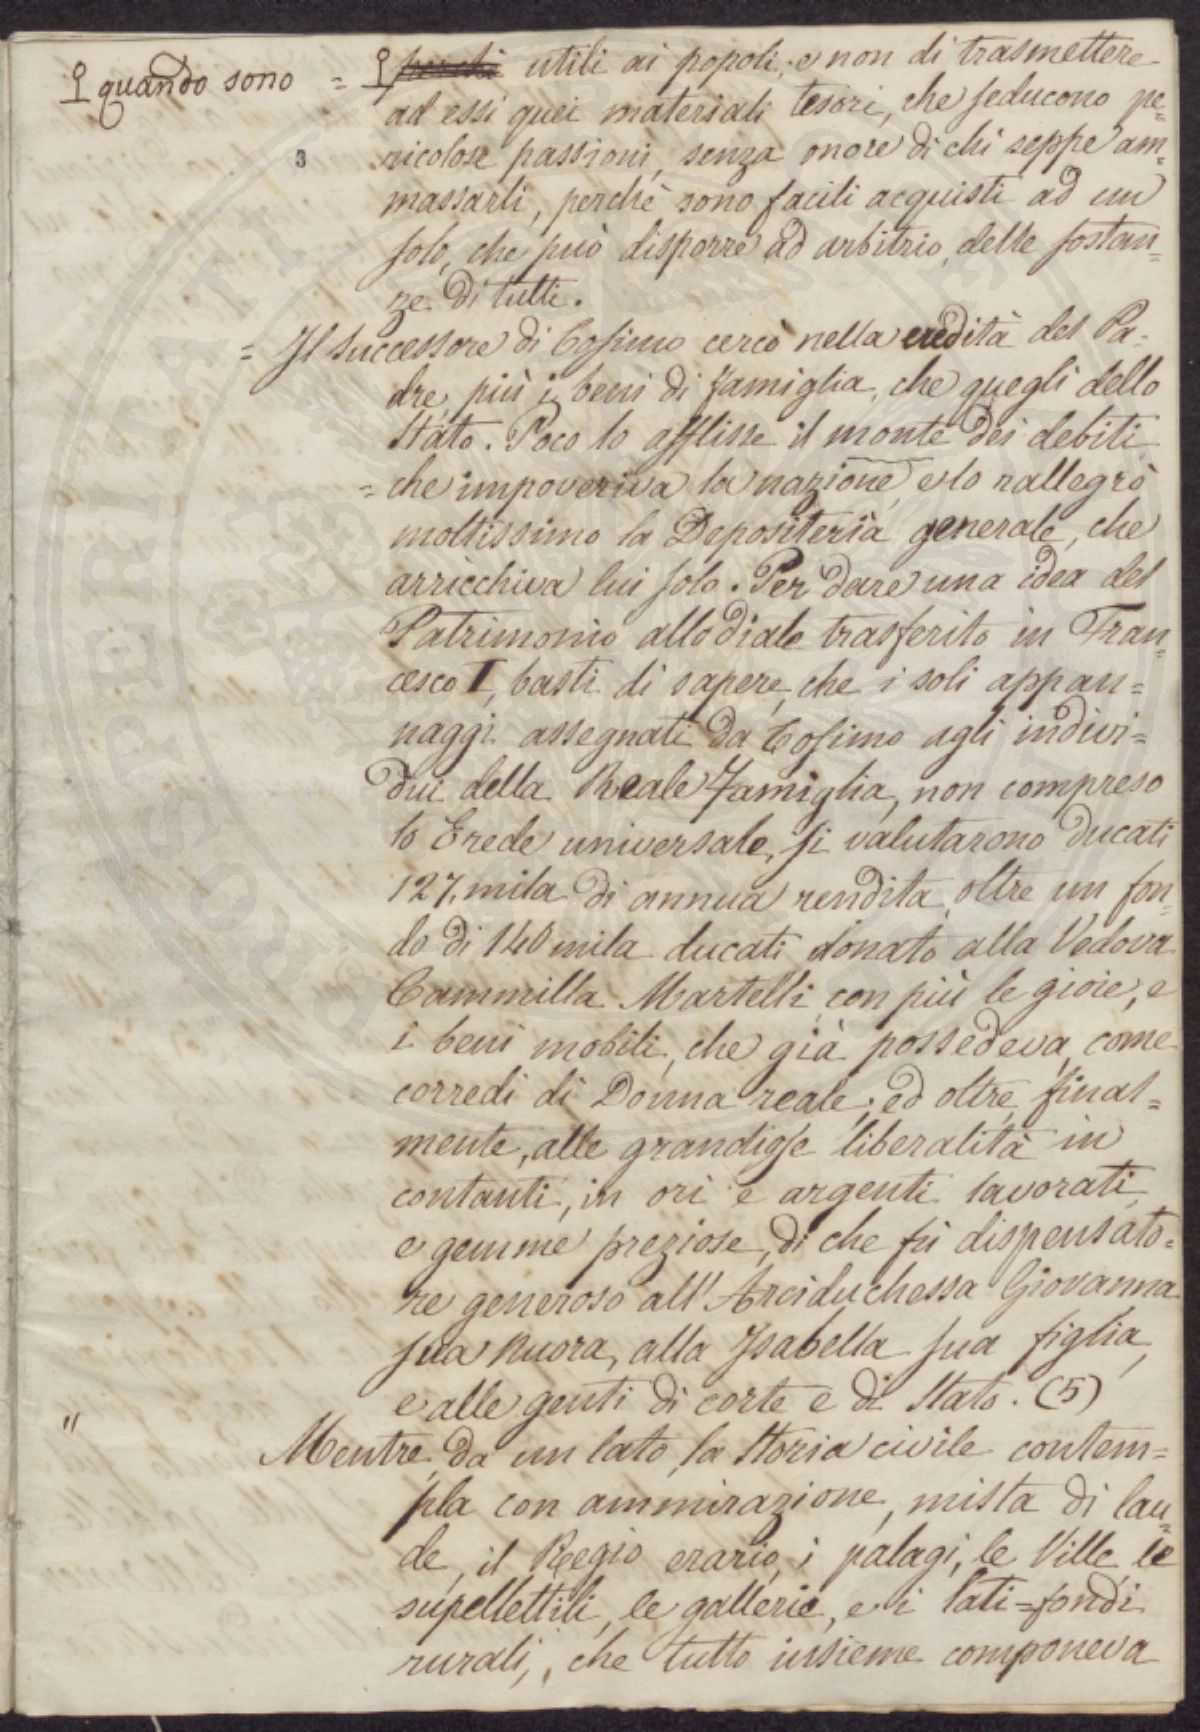 quando sono = perchè utili ai popoli; e non di trasmettere
ad essi quei materiali tesori, che seducono pe=
3
ricolose passioni, senza onore di chi seppe am=
massarli, perchè sono facili acquisti ad un
solo, che può disporre ad arbitrio, delle sostan=
ze di tutti.
= Il Successore di Cosimo cercò nella eredità del Pa=
dre, più i beni di famiglia, che quegli dello
Stato. Poco lo afflisse il monte dei debiti
= che impoveriva la nazione, e lo rallegrò
moltissimo la Depositeria generale, che
arricchiva lui solo. Per dare una idea del
Patrimonio allodiale trasferito in Fran=
cesco I, basti di sapere, che i soli appan=
naggi assegnati da Cosimo agli indivi=
dui della Reale Famiglia, non compreso
lo Erede universale, si valutarono ducati
127. mila di annua rendita, oltre un fon=
do di 140 mila ducati donato alla Vedova
Cammilla Martelli con più le gioie, e
i beni mobili, che già possedeva, come
corredi di Donna reale; ed oltre, final=
mente, alle grandiose liberalità in
contanti, in ori e argenti lavorati,
e gemme preziose, di che fù dispensato=
re generoso all'Arciduchessa Giovanna
sua Nuora, alla Isabella sua figlia,
e alle genti di corte e di Stato. (5)
"
Mentre, da un lato, la Storia civile contem=
pla con ammirazione, mista di lau=
de, il Regio erario, i palagi, le Ville, le
supellettili, le gallerie, e i lati=fondi
rurali, che tutto insieme componeva
PROSPERITATI